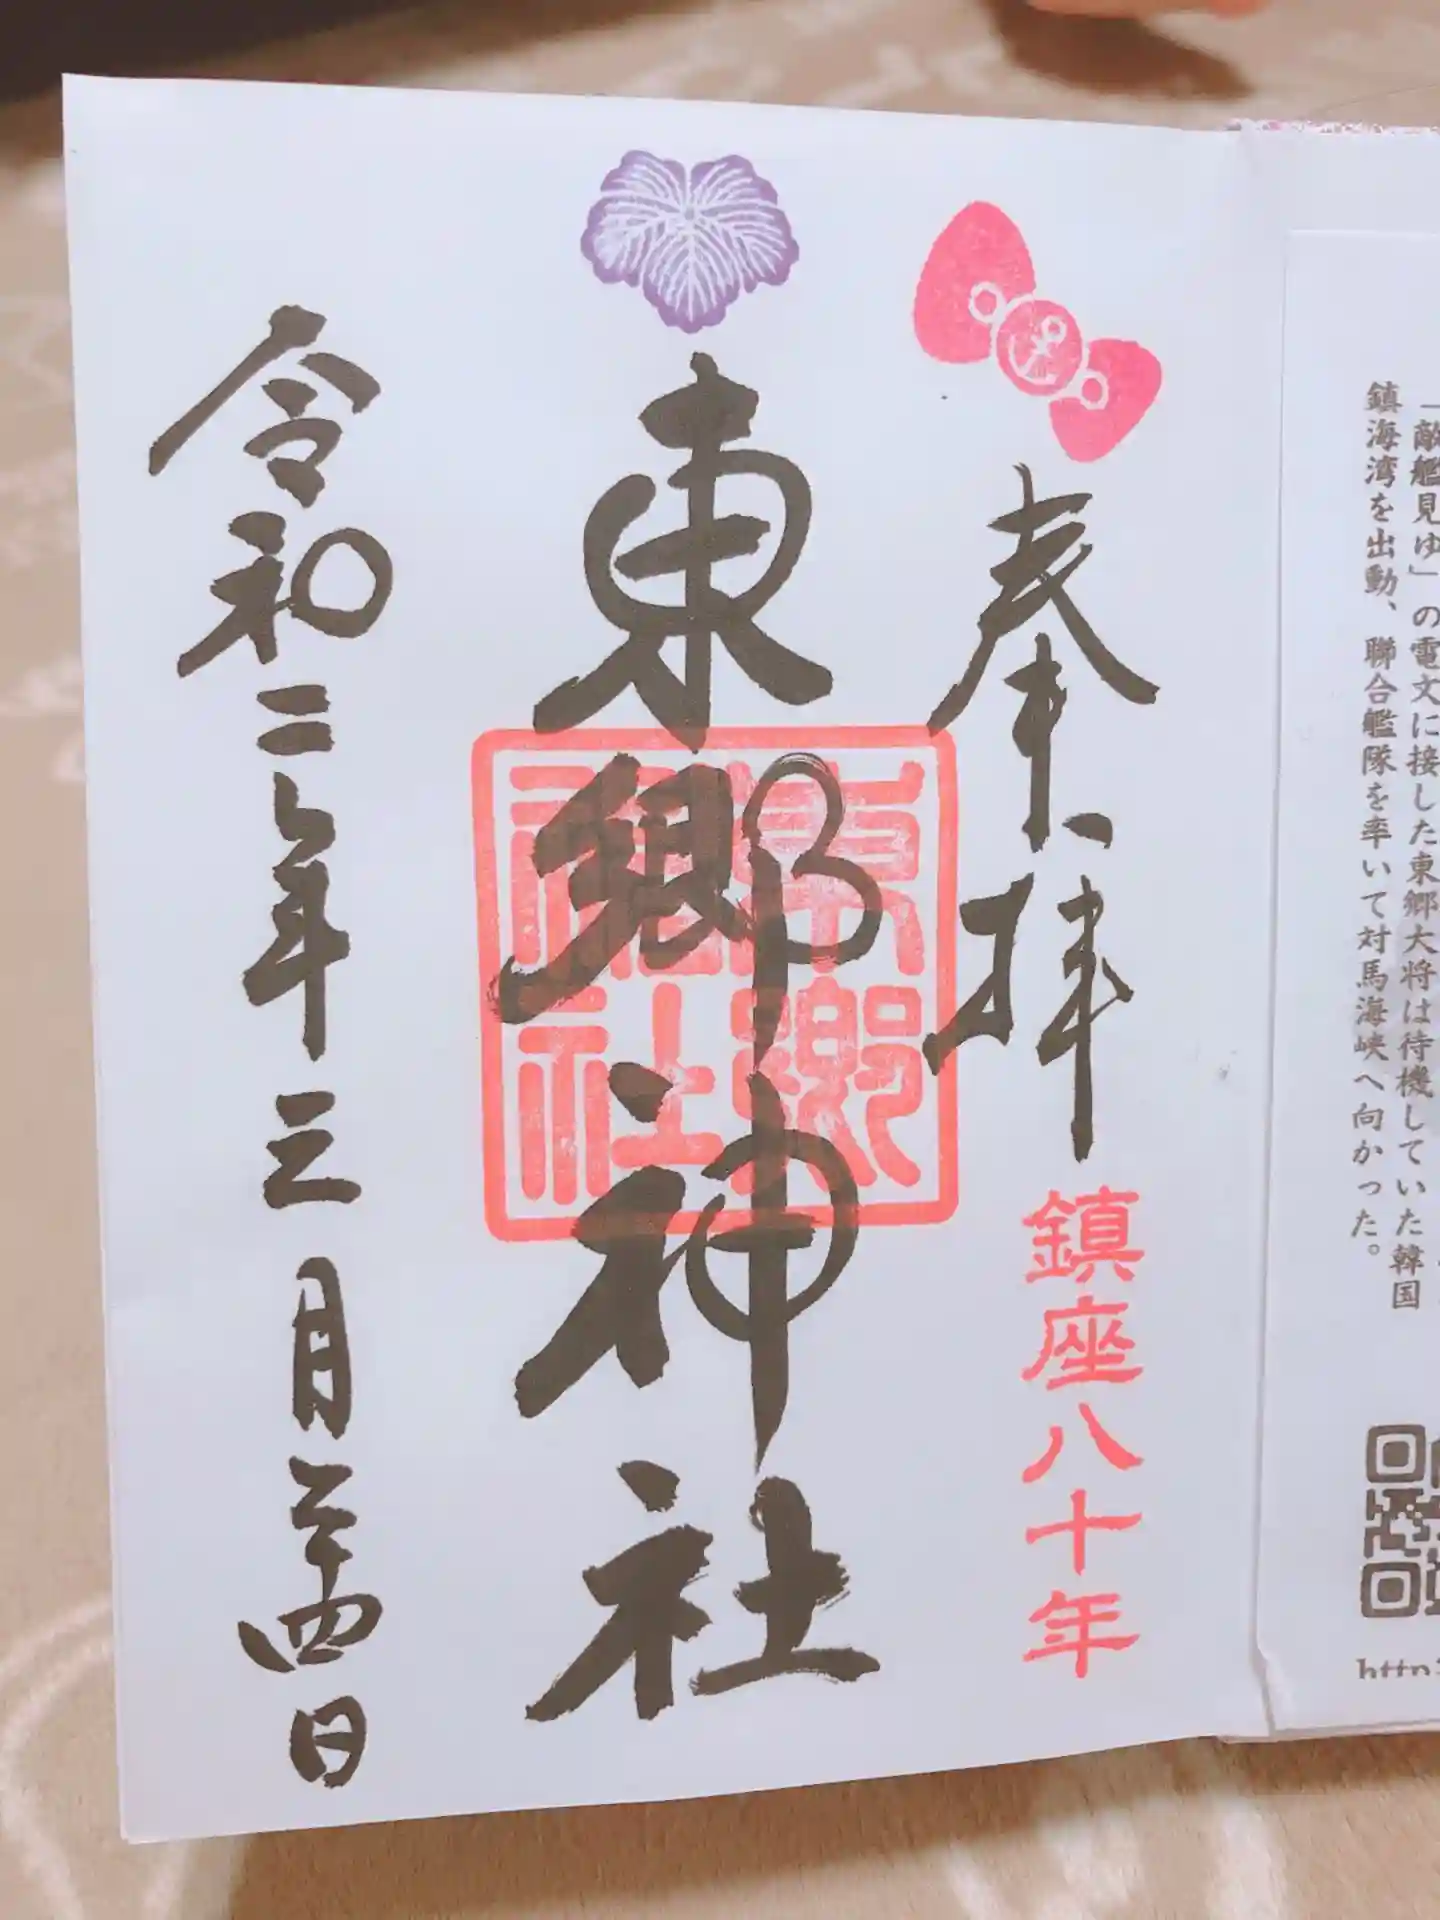 「敵艦見ゆ」の電文に接した東郷大将は待機していた韓国
鎮海湾を出動、聯合艦隊を率いて対馬海峡へ向かった。
http
奉拝
鎮座八十年
東郷神社
東郷
神社
令和二年三月二十四日